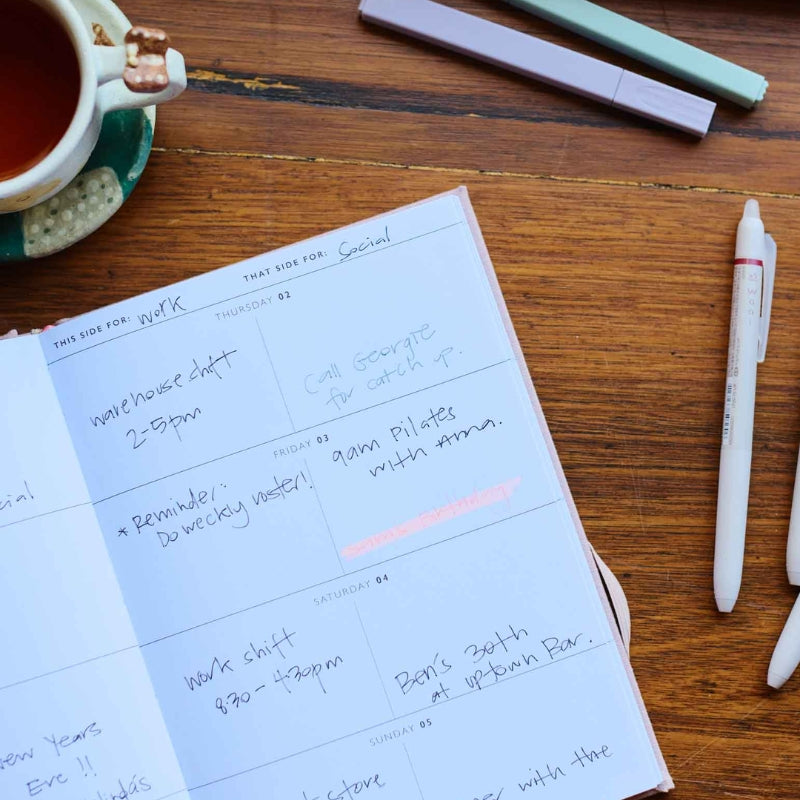 THIS SIDE FOR: work
THAT SIDE FOR: Social
THURSDAY 02
warehouse shift
2-5pm
Call Georgie
for catch up.
FRIDAY 03
* Reminder:
Do weekly roster!
9am Pilates
with Anna.
Birthday
SATURDAY 04
work shift
8:30 - 4:30pm
Ben's 30th
at uptown Bar.
SUNDAY 05
store
with the
Years
Eve !!